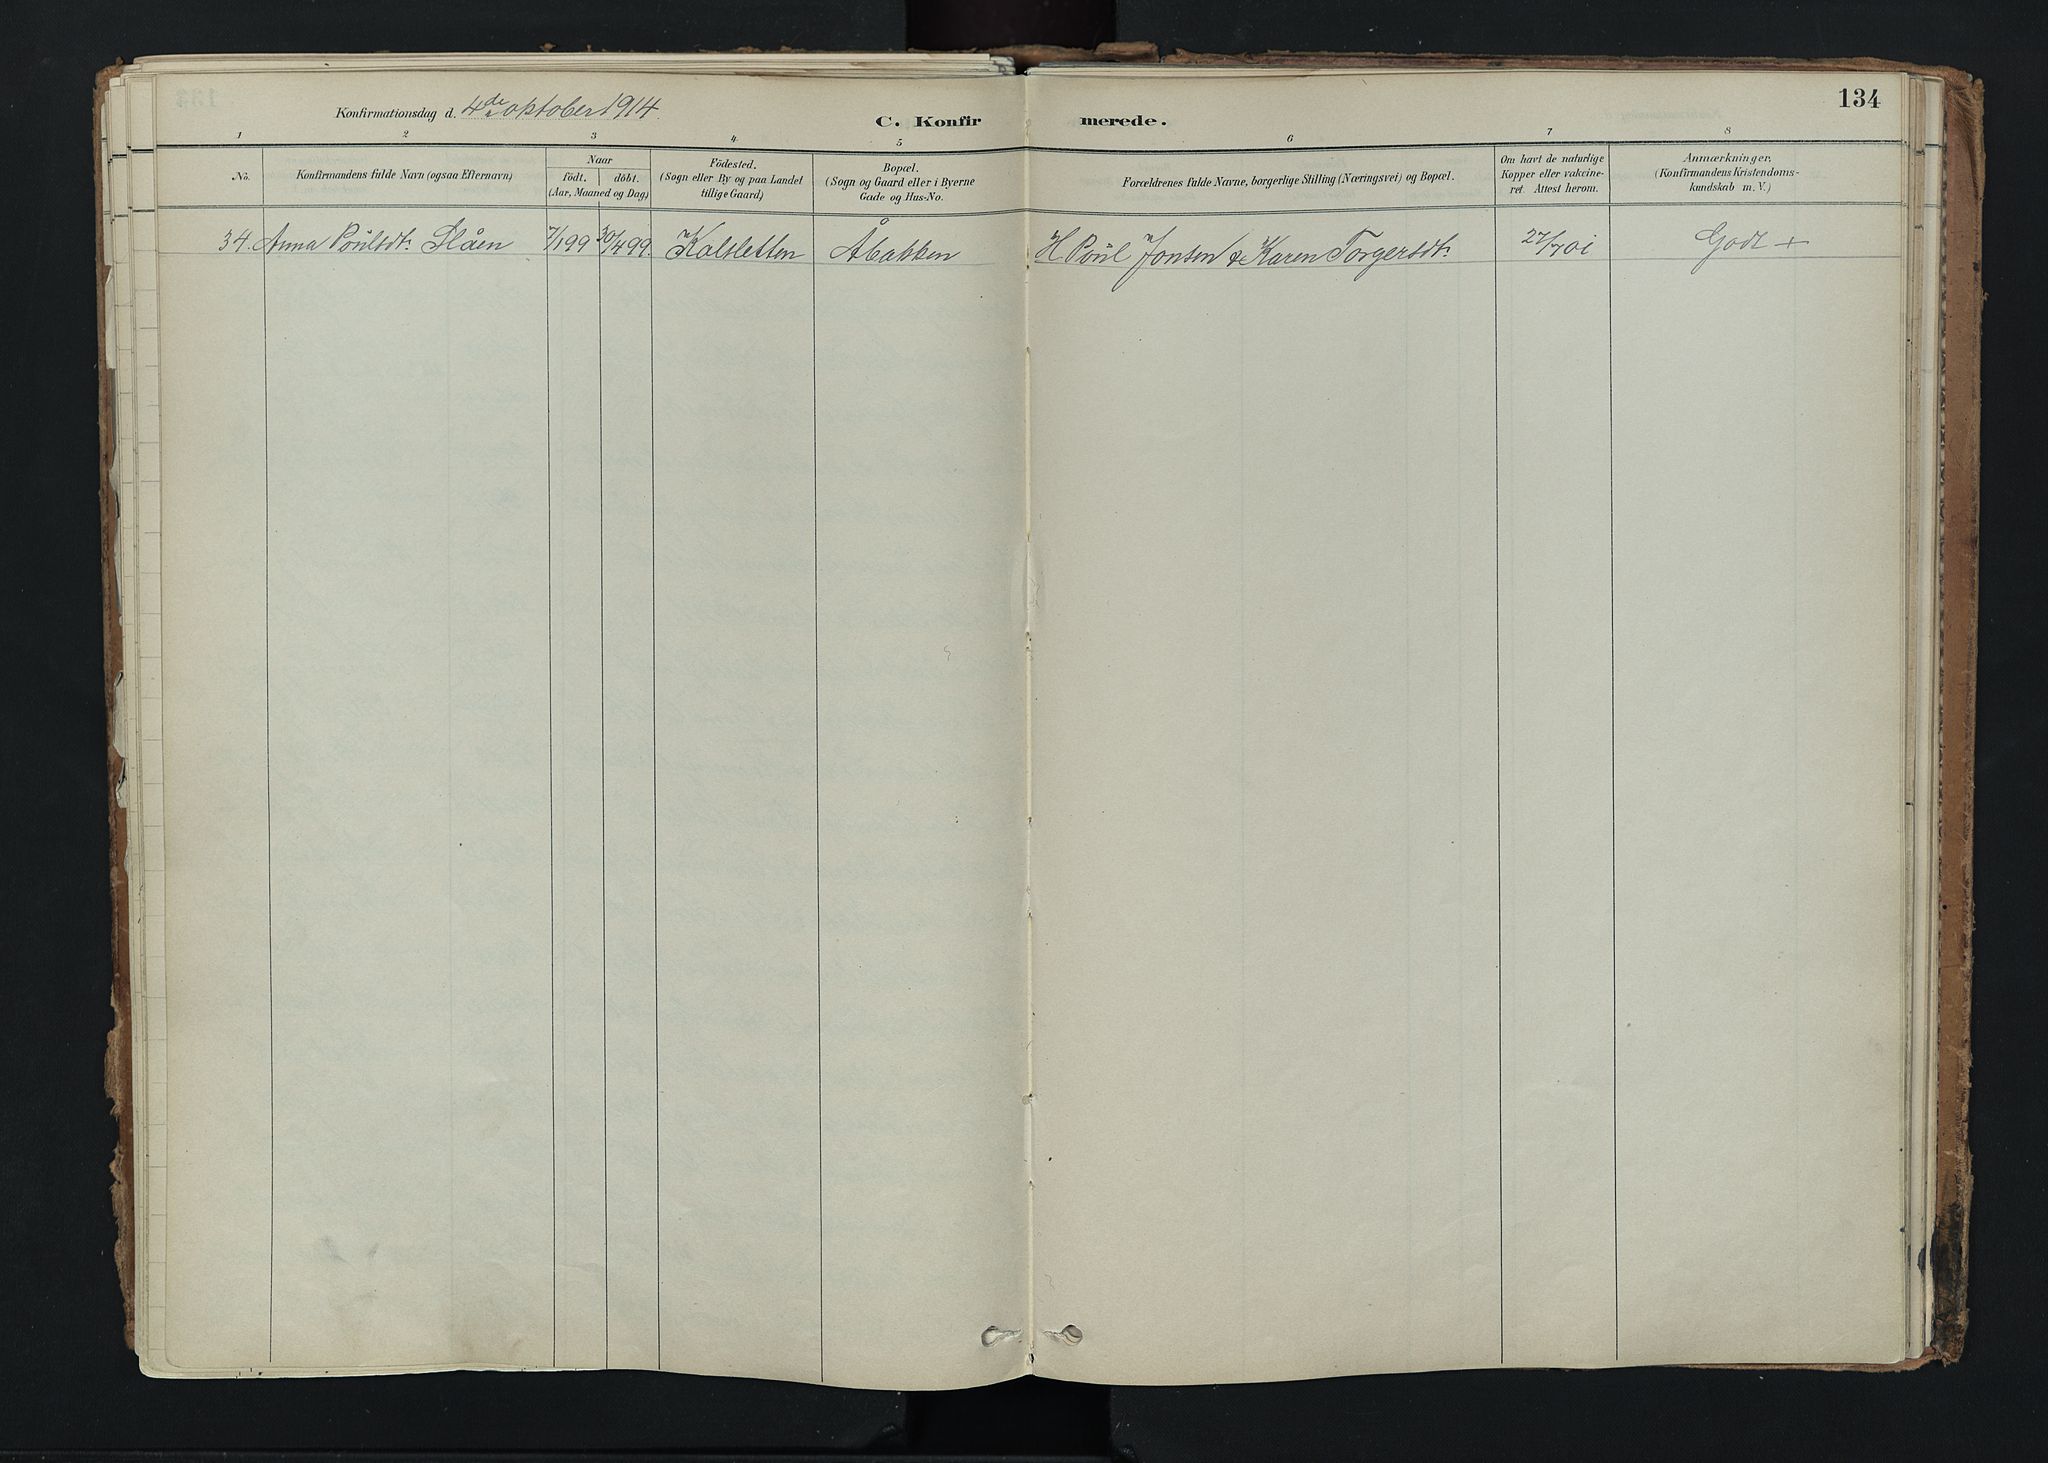 134
Konfirmationsdag d. 4de oktober 1914.
C. Konfirmerede.
1 2 3 4. 5 6 7 8
No.
Konfirmandens fulde Navn (ogsaa Efternavn)
Naar
födt. döbt.
(Aar, Maaned og Dag)
Födested.
(Sogn eller By og paa Landet
tillige Gaard)
Bopæl.
(Sogn og Gaard eller i Byerne
Gade og Hus-No.
Forældrenes fulde Navne, borgerlige Stilling (Næringsvei) og Bopæl.
Om havt de naturlige
Kopper eller vakcine-
ret. Attest herom.
Anmærkninger.
(Konfirmandens Kristendoms-
kundskab m. V.)
34. Anna Poulsdt. Slåen 7/1 99 30/4 99. Kalsletten Åbakken Poul Jonsen & Karen Torgersdt. 27/7 01 Godt +